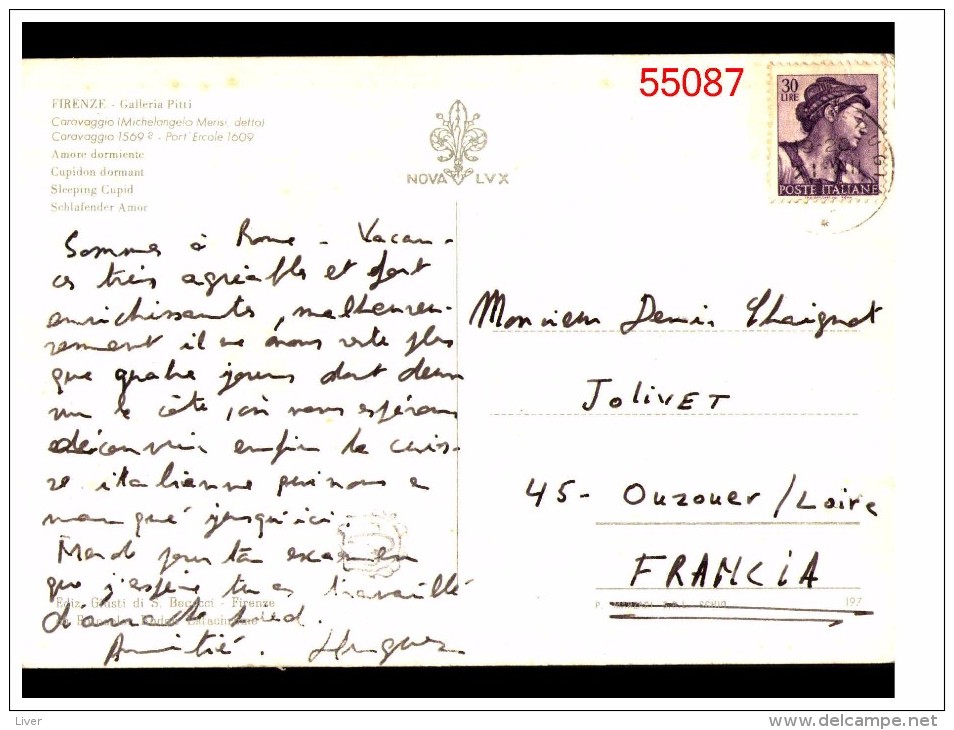 55087
30
LIRE
POSTE ITALIANE
FIRENZE - Galleria Pitti
Caravaggio (Michelangelo Merisi, detto)
Caravaggio 1569 ? - Port'Ercole 1609
Amore dormiente
Cupidon dormant
Sleeping Cupid
Schlafender Amor
NOVA LVX
Sommes à Rome - Vacan-
ces très agréables et fort
enrichissantes, malheureu-
sement il ne nous reste plus
que quatre jours dont deux
sur la côte, où nous espérons
découvrir enfin la cuisi-
ne italienne qui nous a
manqué jusqu'ici.
Merde pour ton examen
que j'espère tu as travaillé
d'arrache pied.
Amitié. Hugues
Monsieur Denis Chaignot
JOLIVET
45- Ouzouer/Loire
FRANCIA
Ediz. Giusti di S. Becocci - Firenze
197
Liver
www.delcampe.net